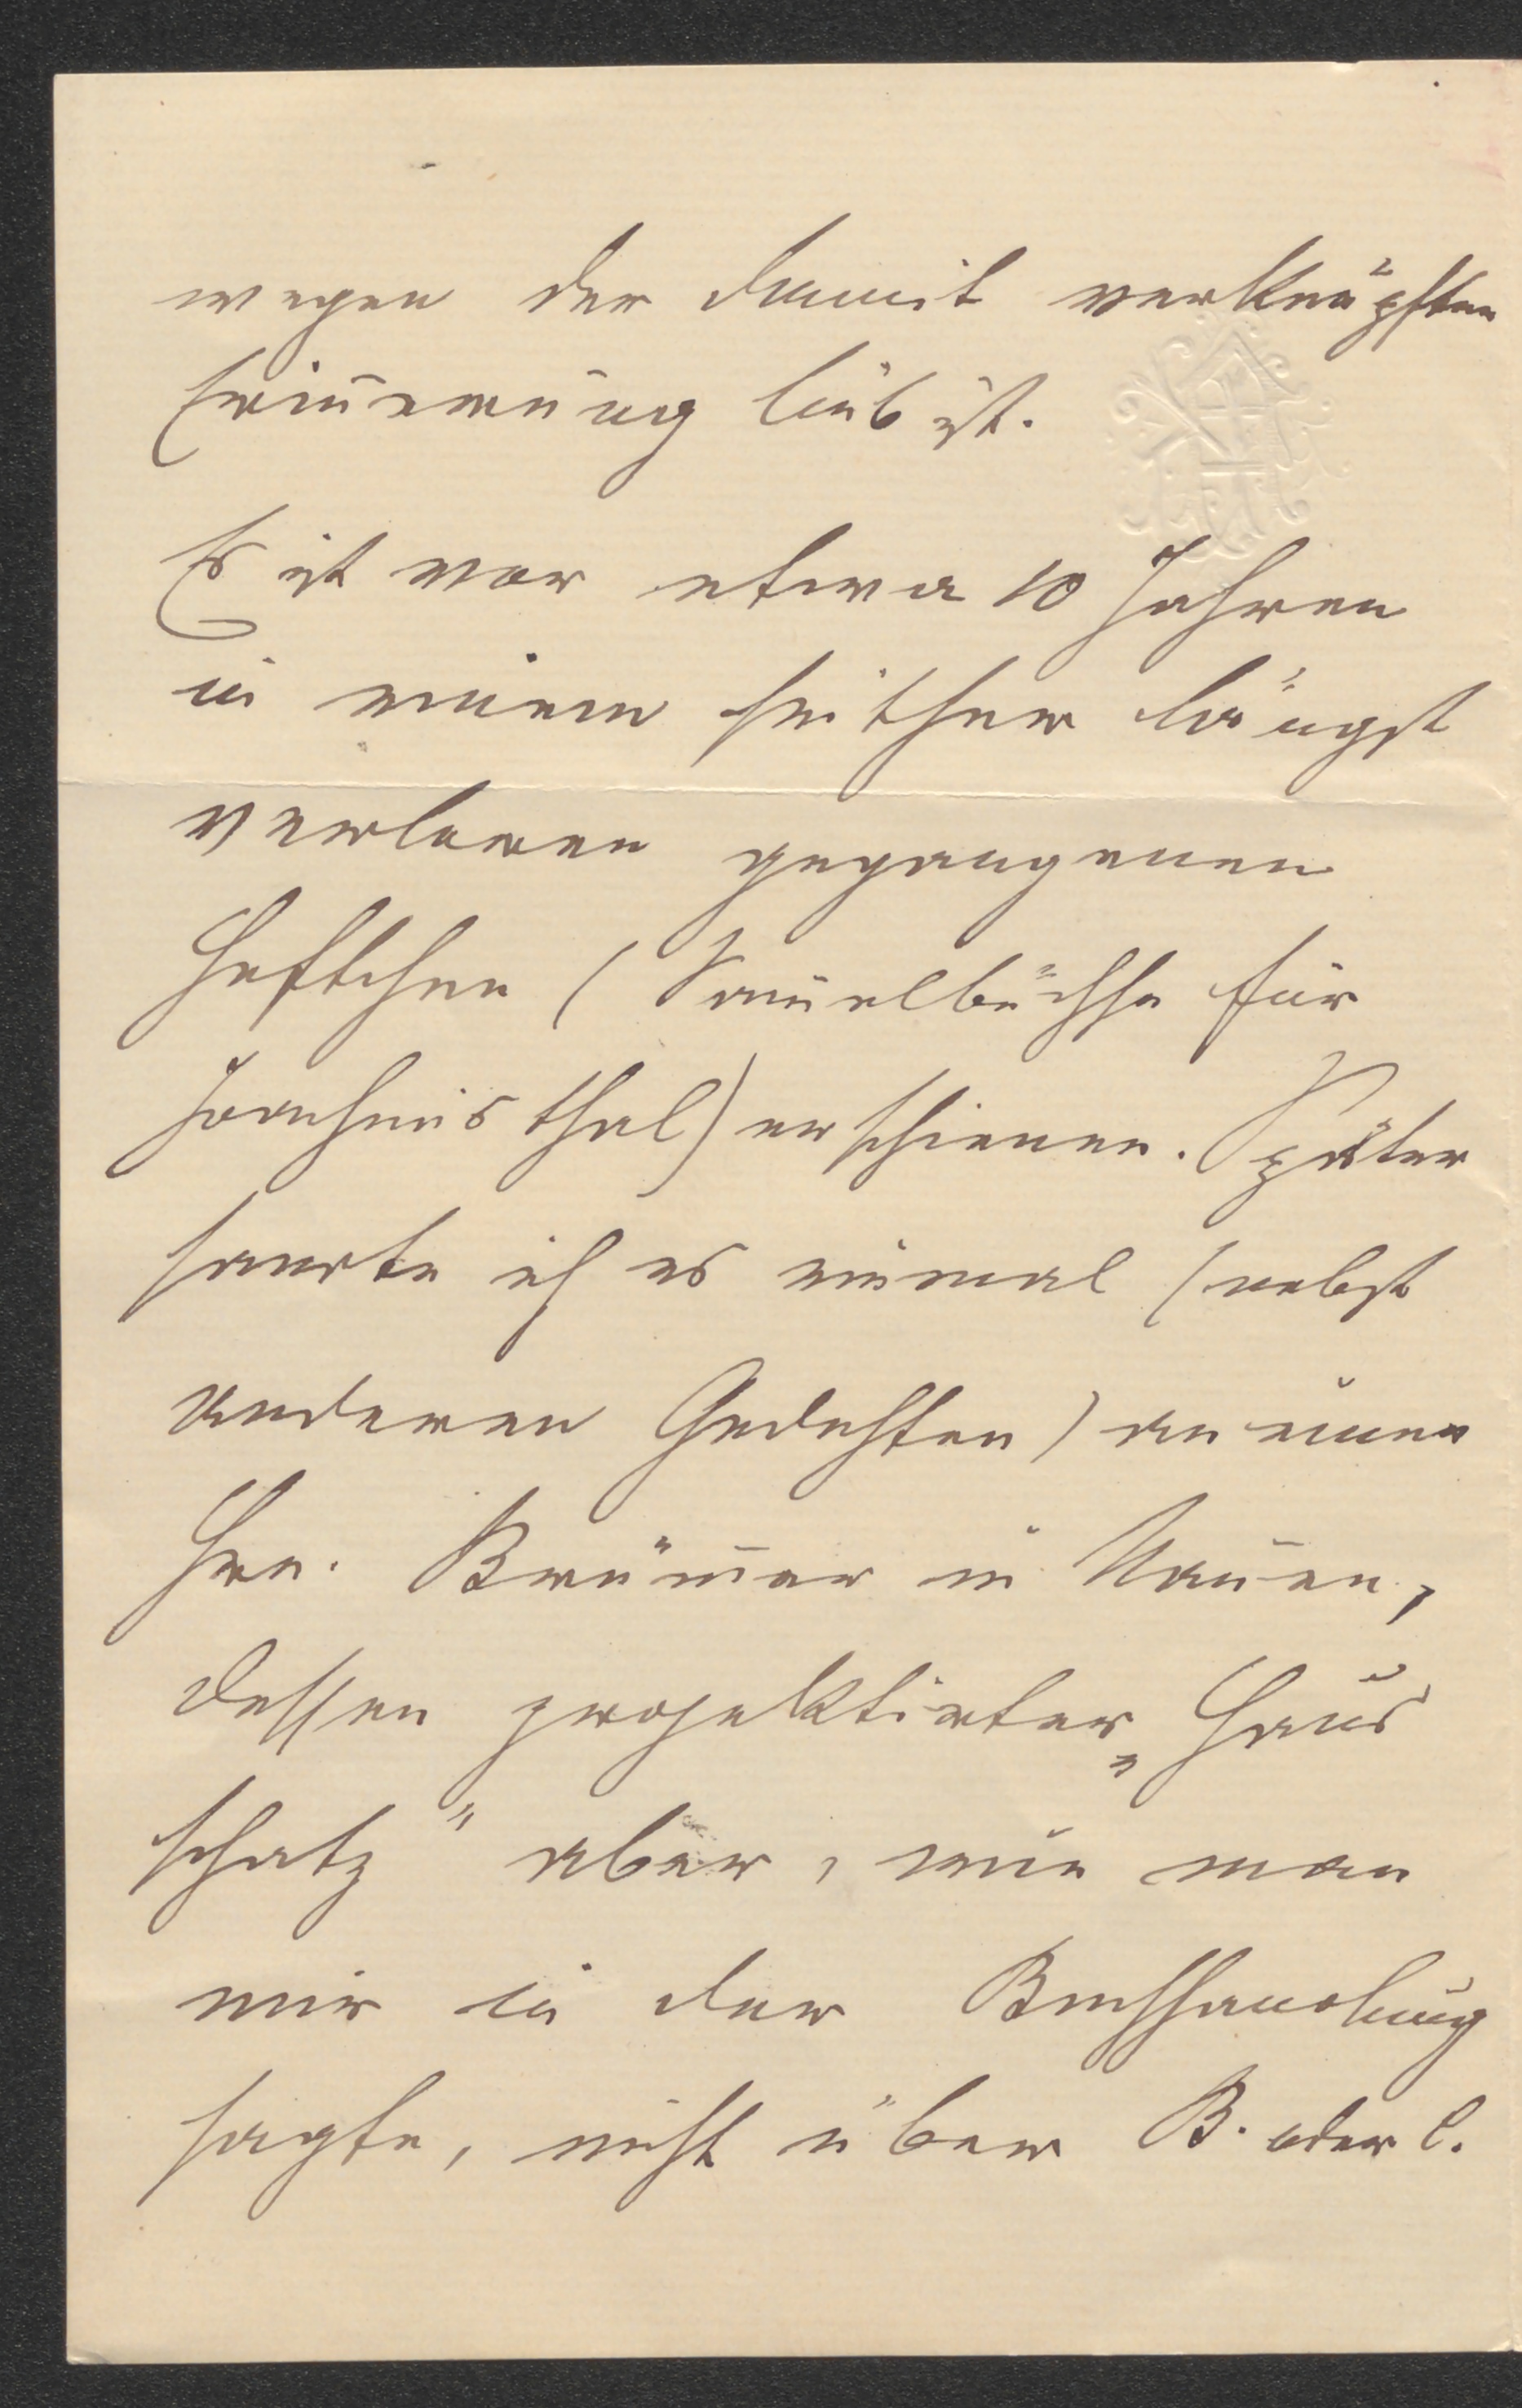 wegen der damit verknüpften
Erinnerung lieb ist.
Es ist vor etwa 10 Jahren
in einem seither längst
verloren gegangenen
Heftchen (Sammelbüchse für
Joachimsthal) erschienen. Später
sandte ich es einmal (nebst
anderen Gedichten) an einen
Hrn. Brümmer in Nauen,
dessen projektirter „Haus
schatz“ aber, wie man
mir in der Buchhandlung
sagte, nicht über B. oder C.